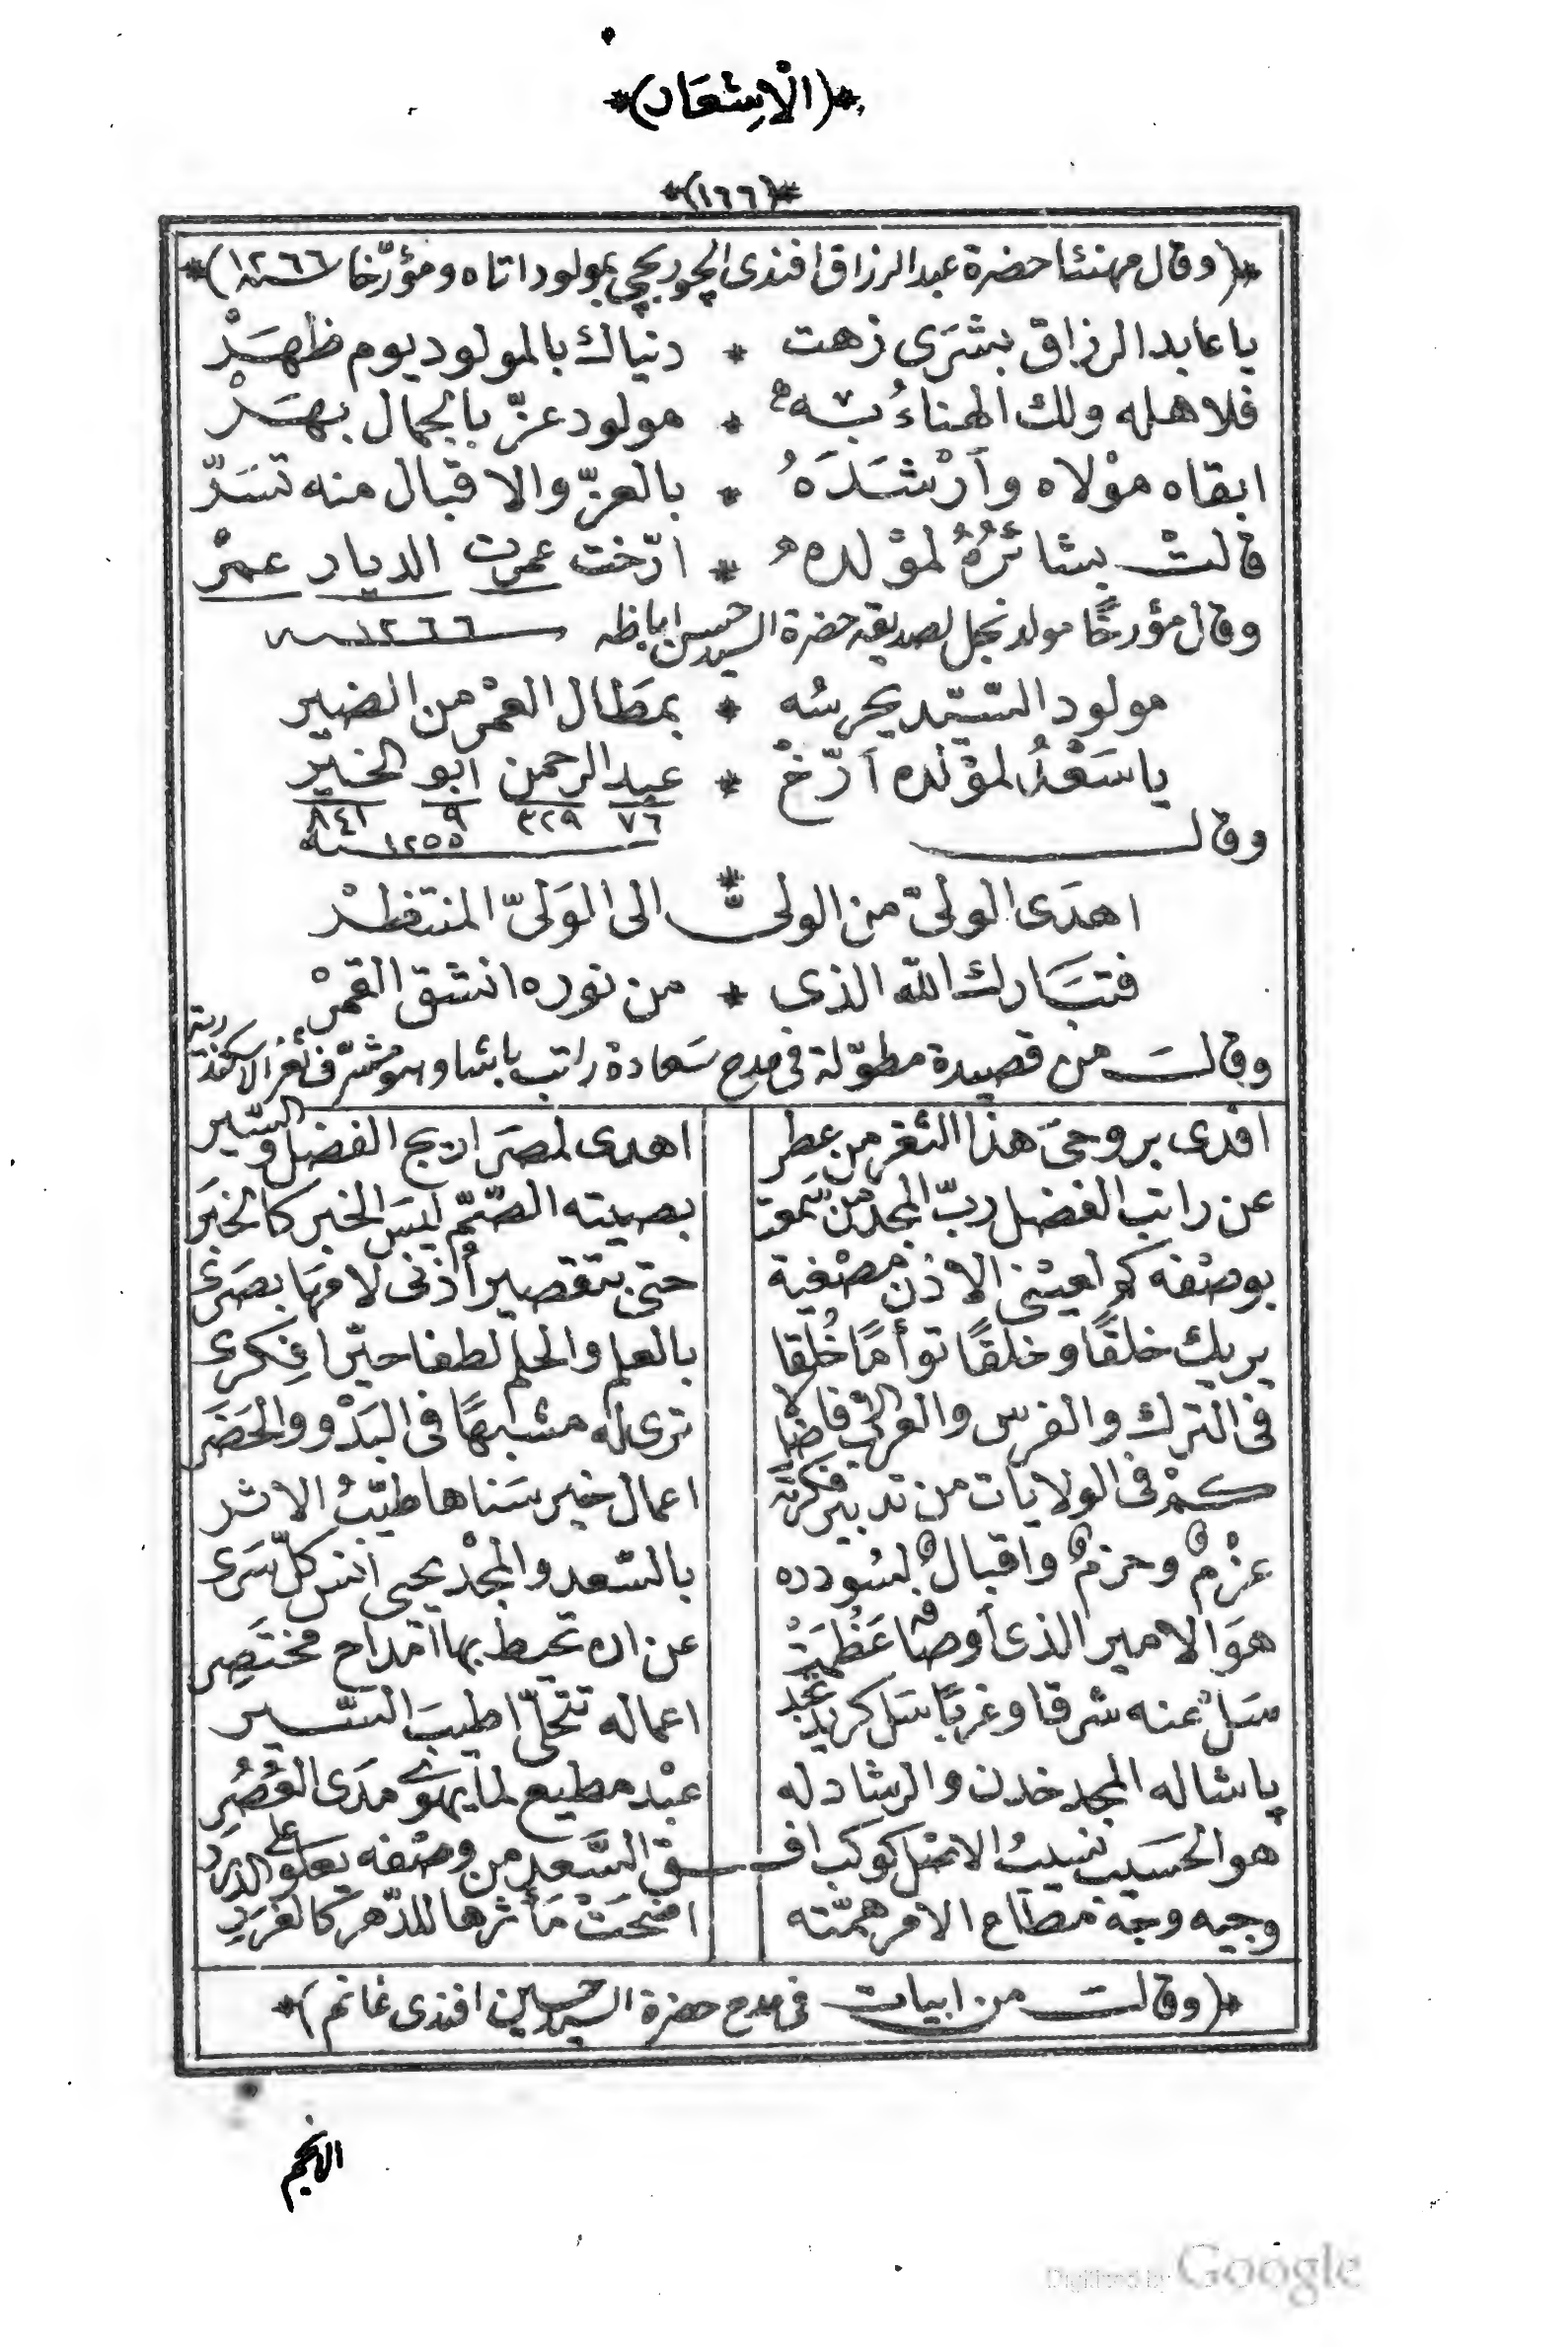 *(الْاشِعَار)*
*(١٦٦)*
*(وقال مهنئا حضرة عبد الرزاق افندى الچوربچى بمولود اتاه ومؤرّخا سنة ١٢٦٦)*
يا عابد الرزاق بشَرَى زهت * دنياك بالمولود يوم ظهَرْ
فلاهله ولك الهناءُ به * مولود عزّ بالجمال بهَرْ
ابقاه موْلاه وأرْشَدَهُ * بالعزّ والاقبال منه تسَرّ
قالتْ بشائرُهُ لموْلده * ارّخت عمرت الديار عمرْ
وقال مؤرخًا مولد نجل لصديقه حضرة السيد حسن اباظه سنة ١٢٦٦
مولود السّيّد يحرسُه * بمطَال العمْر من الضير
يا سَعْدُ لموْلده أرّخْ * عبد الرحمن ابو الخير
٧٦ ٣٢٩ ٩ ٨٤١
وقال سنة ١٢٥٥
اهدَى الولىّ من الولىّ * الى الوَلىّ المنتظرْ
فتبَارك الله الذى * من نوره انشق القمرْ
وقالَت من قصيدة مطوّلة فى مدح سَعادة راتب باشا وهو مشرّف ثغر الاسكندرية
افدى بروحىَ هذا الثغر من عطر اهدى لمصَر اريج الفضل والسّير
عن راتب الفضل ربّ المجد من سَمعت بصيته الصّمّ ليسَ الخبر كالخبَر
بوصْفه كم لعيْنى الاذن مصْغية حتى بتقصير أُذنى لامهَا بصَرى
يريك خلقًا وخلقًا توأمًا خُلقا بالعلم والحلم لطفا حيّرا فِكرى
فى الترك والفرس والعرب الافاضل لا ترى له مشبهًا فى البَدْو والحَضَر
كمْ فى الولايات من تدبير فكرته اعمال خير سَناها طيّبُ الاثر
عزْمٌ وحزمٌ واقبالٌ لسُودده بالسّعد والمجْد يحيى انس كلّ سَرى
هوَ الامير الذى أوصافه عَظُمَتْ عن ان تحيط بها امْداح مختَصِر
سَلْ عنه شرقا وغربًا سَل كريد تجد اعماله تتحلّى اطيبَ السّير
باشا له المجد خدن والرشاد له عبْد مطيع لما يهْوى مدَى العُصُر
هو الحسَيب نسَيبُ الاصْل كوكب افـ ـق السَّعد من وصْفه يعلو على الدرَر
وجيه وجْه مطَاع الامر همّته اضحَتْ مَأثرها للدّهر كالغرَرِ
*(وقالت من ابيات فى مدح حضرة السيد حسين افندى غانم)*
الانجم
Digitized by Google